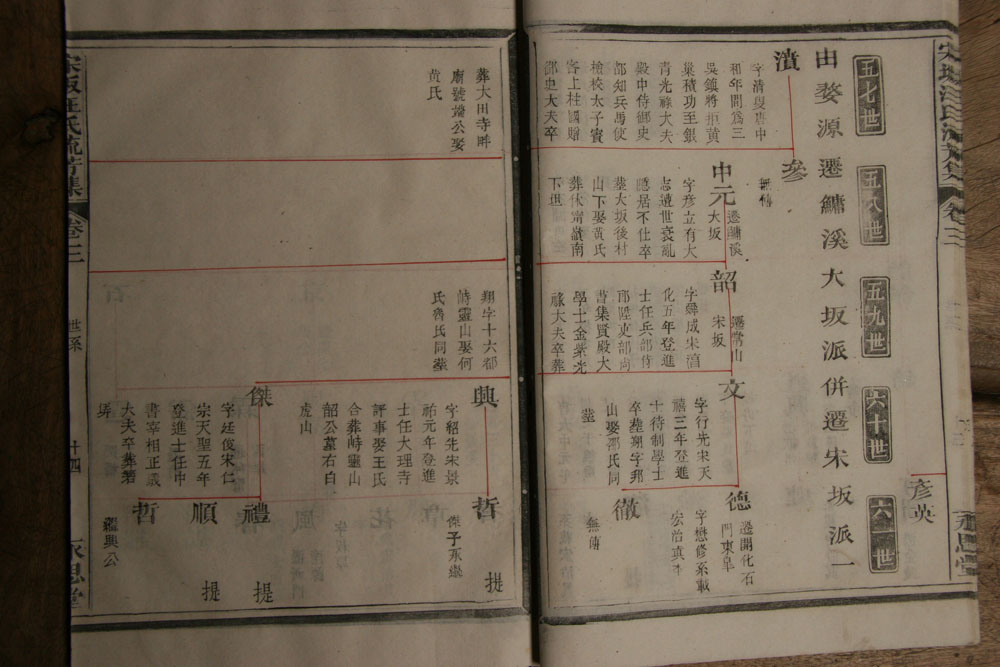 彥英
由婺源遷鱅溪大坂派併遷宋坂派一
五七世
五八世
五九世
六十世
六一世
濆
字清叟唐中
和年間爲三
吳鎮將拒黃
巢積功至銀
青光祿大夫
殿中侍御史
都知兵馬使
檢校太子賓
客上柱國贈
御史大夫卒
葬大田寺畔
廟號端公娶
黃氏
參
無傳
中元
遷鱅溪
大坂
字彥立有大
志遭世衰亂
隱居不仕卒
葬大坂後村
山下娶黃氏
葬伏甯嶺南
下坦
韶
遷常山
宋坂
字舜成宋淳
化五年登進
士任兵部侍
郎陞吏部尚
書集賢殿大
學士金紫光
祿大夫卒葬
翔字十六都
峙靈山娶何
氏魯氏同葬
文
字行先宋天
禧三年登進
士待制學士
卒葬翔字都
山娶邵氏同
葬
興
字紹先宋景
祐元年登進
士任大理寺
評事娶王氏
合葬峙靈山
韶公墓右白
虎山
傑
字廷俊宋仁
宗天聖五年
登進士任中
書宰相正議
大夫卒葬祖
塋
德
遷開化石
門東阜
字懋修系載
宏治真本
徹
無傳
哲
傑子承繼
提
禮
提
順
提
哲
繼興公
宋坂汪氏流芳集
卷三
世系
十四
永思堂